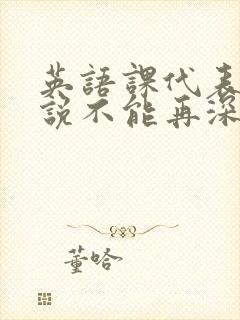 英語課代表
說不能再深
董哈